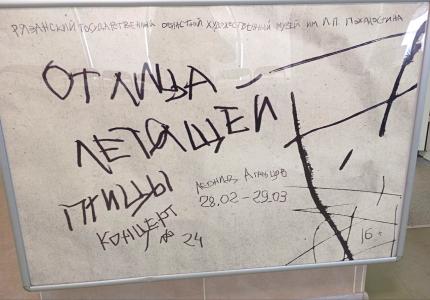 РЯЗАНСКИЙ ГОСУДАРСТВЕННЫЙ ОБЛАСТНОЙ ХУДОЖЕСТВЕННЫЙ МУЗЕЙ ИМ И.П. ПОЖАЛОСТИНА
ОТ ЛИЦА
ЛЕТЯЩЕЙ
ПТИЦЫ
ЛЕОНИД
28.02 - 29.03
КОНЦЕРТ
№ 24
16+